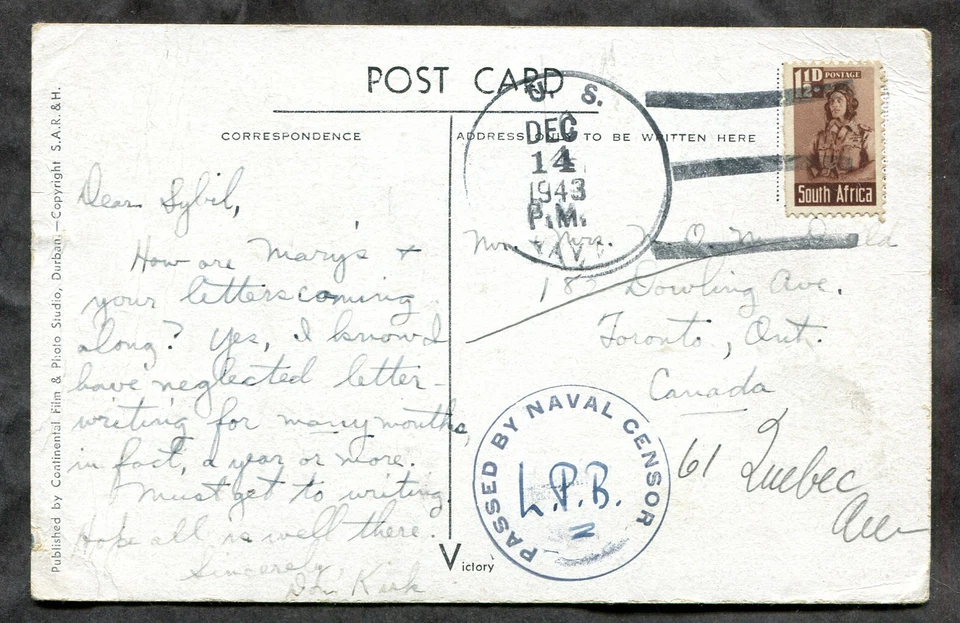 POST CARD
CORRESPONDENCE
ADDRESS ONLY TO BE WRITTEN HERE
Published by Continental Film & Photo Studio, Durban.—Copyright S.A.R.& H.
Dear Sybil,
How are Mary's +
your letters coming
along? Yes, I know I
have neglected letter-
writing for many months,
in fact, a year or more.
Must get to writing.
Hope all is well there.
Sincerely,
Don Kirk
Victory
U. S.
DEC
14
1943
P.M.
NAVY
1½D POSTAGE
South Africa
+ Mrs.
Dowling Ave.
Toronto, Ont.
Canada
61 Quebec
Ave
PASSED BY NAVAL CENSOR
L.P.B.